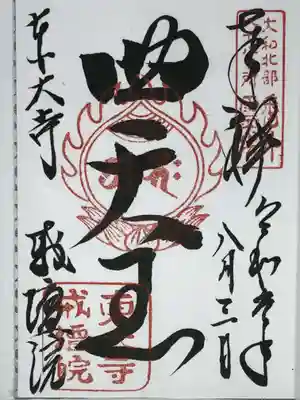 大和北部
奉拝
令和元年
八月三日
四天王
東大寺
戒壇院
東大寺
戒壇院